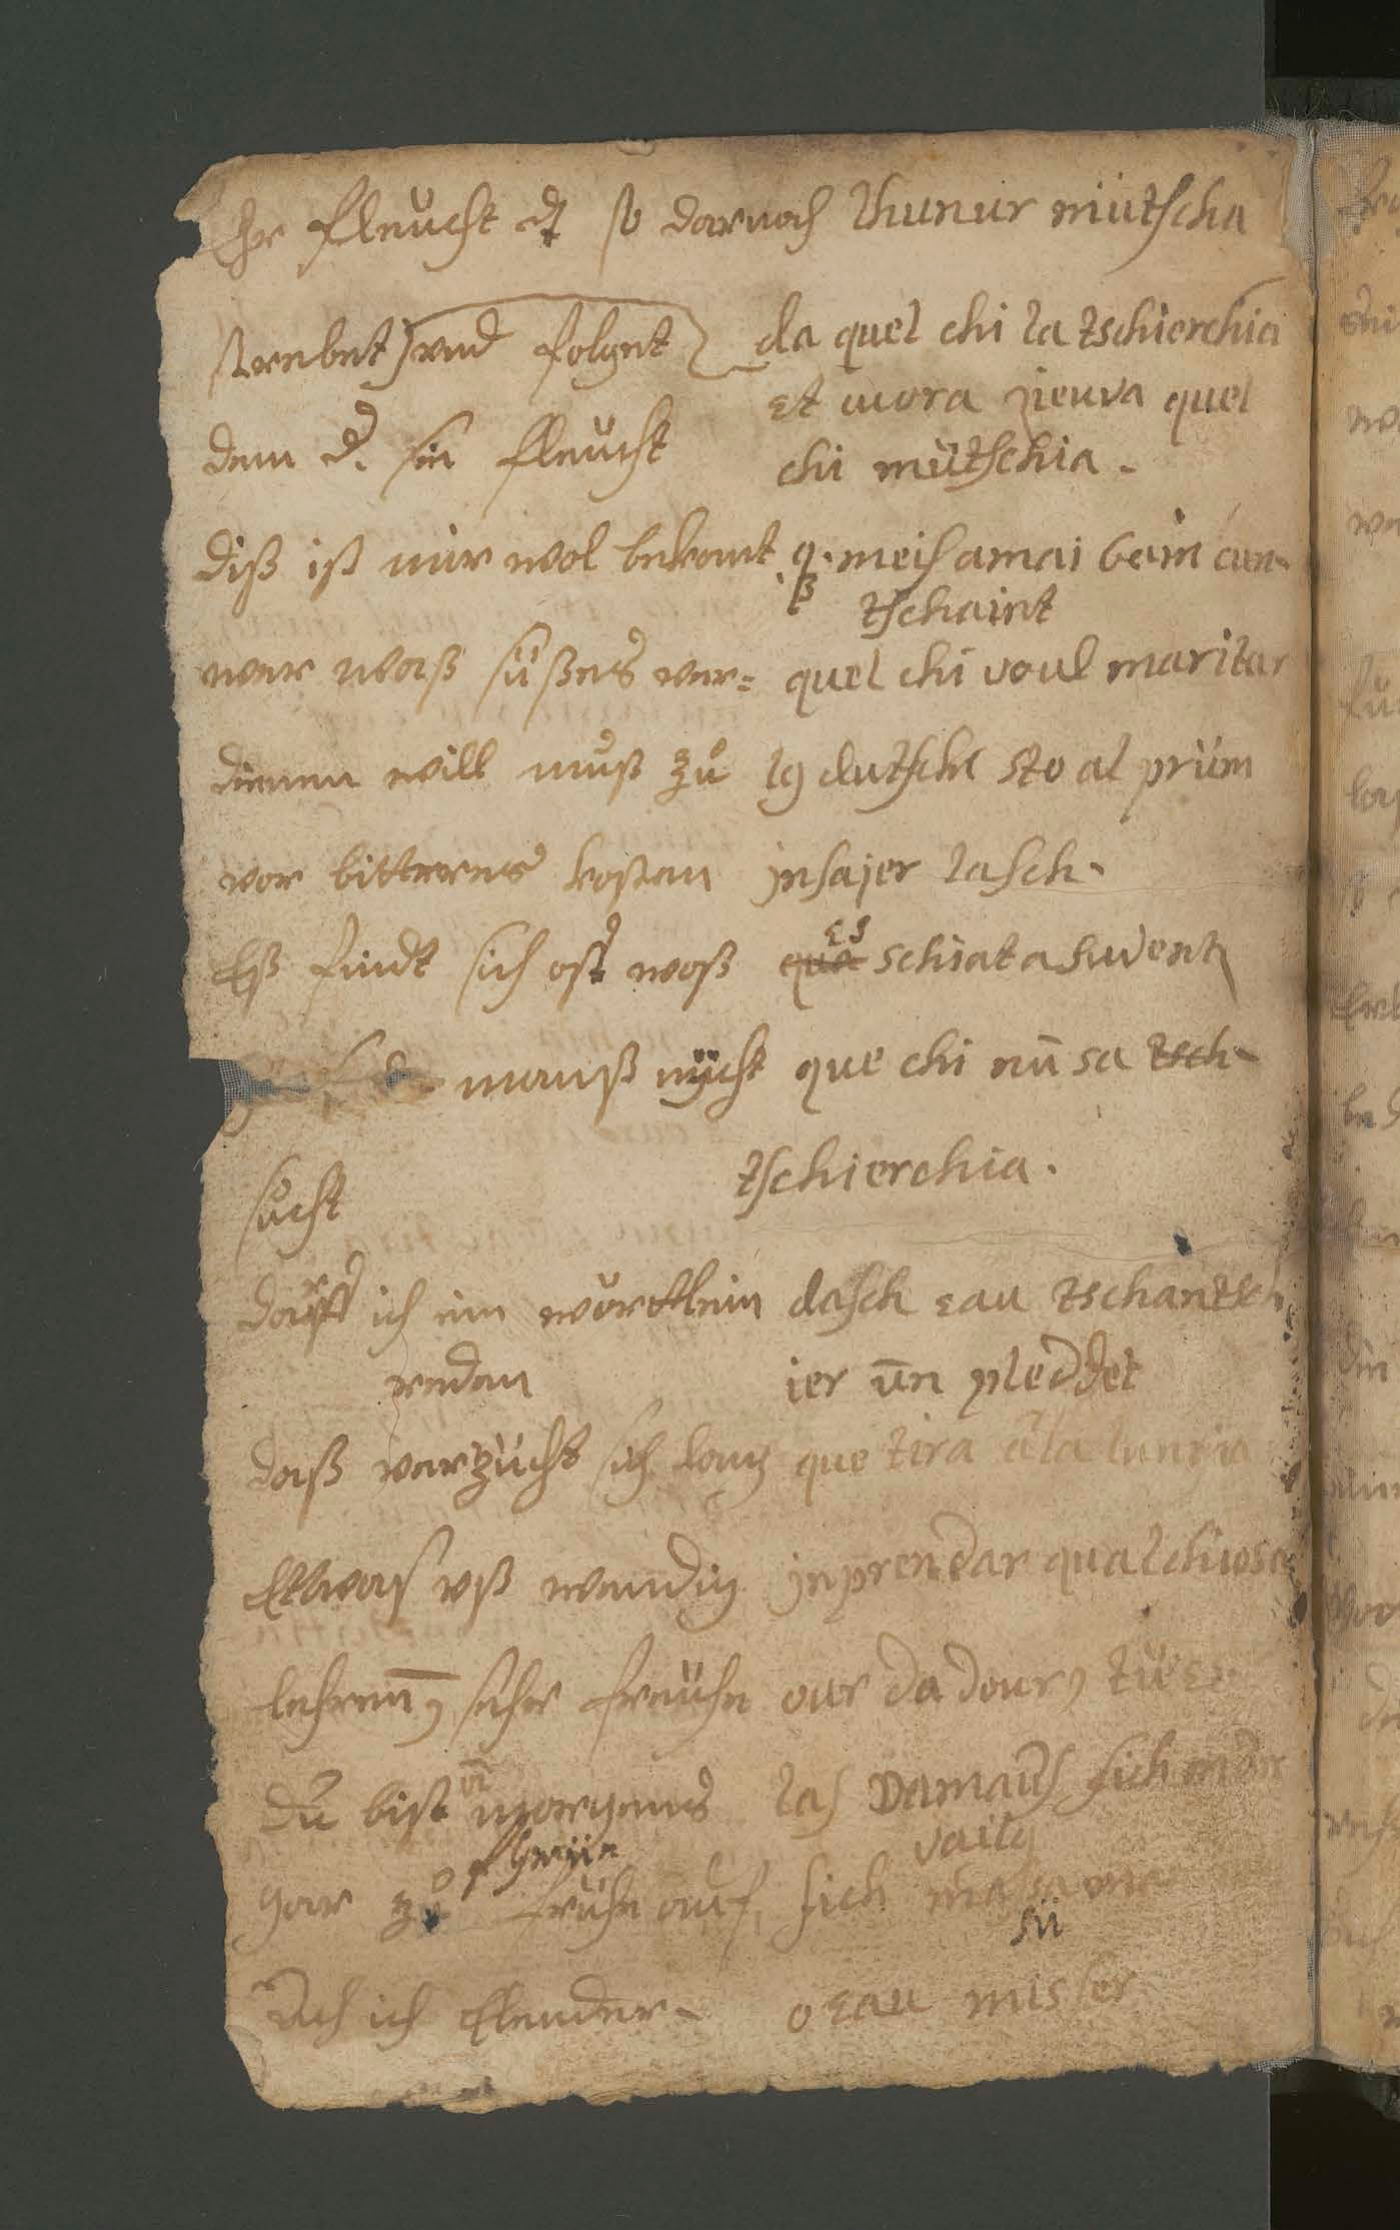 Ehr fleucht dt so darnach lhunur mütscha
strebet) vnd folget da quel chi la tschierchia
et mora zieuva quel
dem d. sie fleucht chi mütschia.
diß ist mir wol bekant q. meis amai bain cun-
tschaint
wer waß süßes ver= quel chi voul maritar
dienen will muß zů lg dutsche sto al prüm
vor bitteres kosten insajer lasch.
Eß findt sich oft waß es schiatasuvent
manß nicht que chi nũ sa tsch-
sůcht tschierchia.
darff ich ein wörtlein dasch eau tschantsch
reden ier ün pleddet
daß verzücht sich lang que tira a la lungia
Etwas vß wendig inprendar qualchiosa
lehrnen, sehr frühe our da dour, tü es
Du bist morgens las damaus sich mdn
vaila
gar zů frühe auf, sich masa
sü
Ach ich Elender- o eau misser